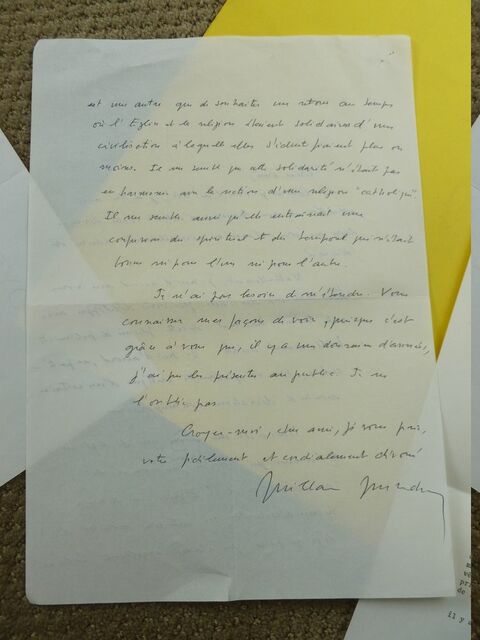 est une autre que de souhaiter un retour au temps
où l'Eglise et la religion étaient solidaires d'une
civilisation à laquelle elles s'identifiaient plus ou
moins. Il me semble que cette solidarité n'était pas
en harmonie avec la notion d'une religion "catholique"
Il me semble aussi qu'elle entraînait une
confusion du spirituel et du temporel qui n'était
bonne ni pour l'un ni pour l'autre.
Je n'ai pas besoin de m'étendre. Vous
connaissez mes façons de voir, puisque c'est
grâce à vous que, il y a une douzaine d'années,
j'ai pu les présenter au public. Je ne
l'oublie pas.
Croyez-moi, cher ami, je vous prie,
votre fidèlement et cordialement dévoué
il y a